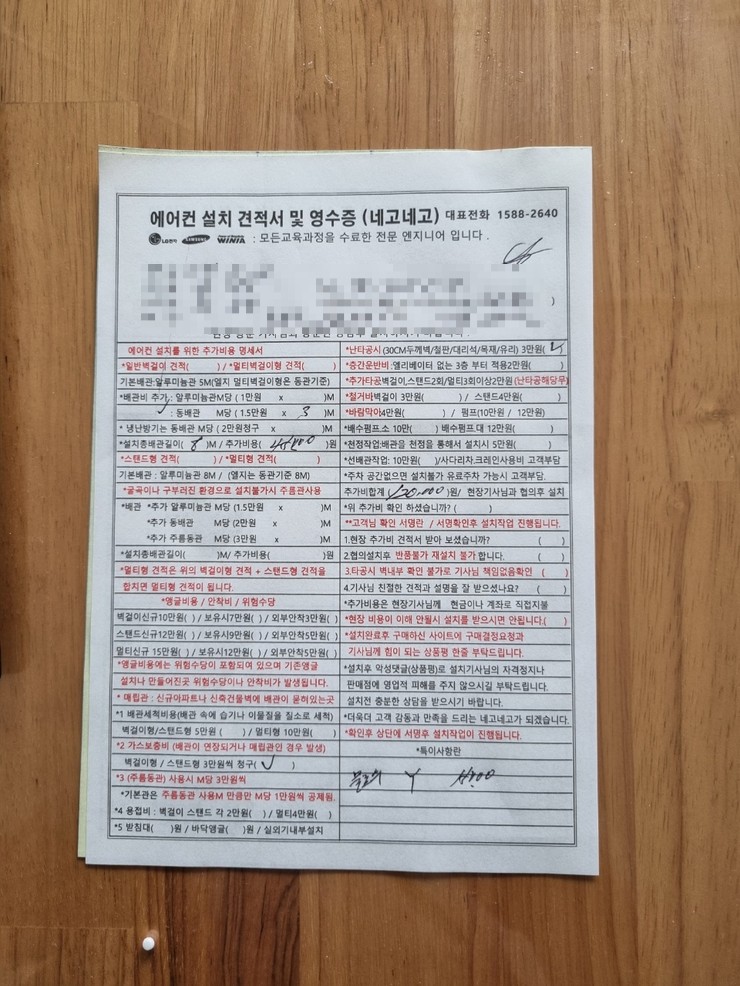 에어컨 설치 견적서 및 영수증 (네고네고) 대표전화 1588-2640
LG전자 SAMSUNG WINIA : 모든교육과정을 수료한 전문 엔지니어 입니다.
에어컨 설치를 위한 추가비용 명세서
*일반벽걸이 견적( ) / *멀티벽걸이형 견적( )
기본배관:알루미늄관 5M(엘지 멀티벽걸이형은 동관기준)
*배관비 추가: 알루미늄관M당 ( 1만원 x )M
: 동배관 M당 ( 1.5만원 x 3 )M
* 냉난방기는 동배관 M당 ( 2만원청구 x )M
*설치총배관길이( 8 )M / 추가비용( 45,000 )원
*스탠드형 견적( ) / *멀티형 견적( )
기본배관 : 알루미늄관 8M / (엘지는 동관기준 8M)
*굴곡이나 구부러진 환경으로 설치불가시 주름관사용
*배관 *추가 알루미늄관 M당 (1.5만원 x )M
*추가 동배관 M당 (2만원 x )M
*추가 주름동관 M당 (3만원 x )M
*설치총배관길이( )M/ 추가비용( )원
*멀티형 견적은 위의 벽걸이형 견적 + 스탠드형 견적을
합치면 멀티형 견적이 됩니다.
*앵글비용 / 안착비 / 위험수당
벽걸이신규10만원( ) / 보유시7만원( ) / 외부안착3만원( )
스탠드신규12만원( ) / 보유시9만원( ) / 외부안착5만원( )
멀티신규 15만원( ) / 보유시12만원( ) / 외부안착5만원( )
*앵글비용에는 위험수당이 포함되여 있으며 기존앵글
설치나 만들어진곳 위험수당이나 안착비가 발생됩니다.
* 매립관 : 신규아파트나 신축건물벽에 배관이 묻혀있는곳
*1 배관세척비용(배관 속에 습기나 이물질을 질소로 세척)
벽걸이형/스탠드형 5만원 ( ) / 멀티형 10만원( )
*2 가스보충비 (배관이 연장되거나 매립관인 경우 발생)
벽걸이형 / 스탠드형 3만원씩 청구( )
*3 (주름동관) 사용시 M당 3만원씩
*기본관은 주름동관 사용M 만큼만 M당 1만원씩 공제됨.
*4 용접비 : 벽걸이 스탠드 각 2만원( ) / 멀티4만원( )
*5 받침대( )원 / 바닥앵글( )원 / 실외기내부설치
*난타공시 (30CM두께벽/철판/대리석/목재/유리) 3만원( )
*층간운반비:엘리베이터 없는 3층 부터 적용2만원( )
*추가타공벽걸이,스탠드2회/멀티3회이상2만원(난타공해당무)
*철거바벽걸이 3만원( ) / 스탠드4만원( )
*바람막이4만원( ) / 펌프(10만원 / 12만원)
*배수펌프소 10만( ) 배수펌프대 12만원( )
*천정작업:배관을 천정을 통해서 설치시 5만원( )
*선배관작업: 10만원( )/사다리차.크레인사용비 고객부담
*주차 공간없으면 설치불가 유료주차 가능시 고객부담.
추가비합계( 130,000 )원/ 현장기사님과 협의후 설치
*위 추가비 확인 하셨습니까? ( )
**고객님 확인 서명란 / 서명확인후 설치작업 진행됩니다.
1.현장 추가비 견적서 받아 보셨습니까? ( )
2.협의설치후 반품불가 재설치 불가합니다. ( )
3.타공시 벽내부 확인 불가로 기사님 책임없음확인 ( )
4.기사님 친절한 견적과 설명을 잘 받으셨나요? ( )
*추가비용은 현장기사님께 현금이나 계좌로 직접지불
*현장 비용이 이해 안될시 설치를 받으시면 안됩니다.( )
*설치완료후 구매하신 사이트에 구매결정요청과
기사님께 힘이 되는 상품평 한줄 부탁드립니다.
*설치후 악성댓글(상품평)로 설치기사님의 자격정지나
판매점에 영업적 피해를 주지 않으시길 부탁드립니다.
설치전 충분한 상담을 받으시기 바랍니다.
*더욱더 고객 감동과 만족을 드리는 네고네고가 되겠습니다.
*확인후 상단에 서명후 설치작업이 진행됩니다.
*특이사항란